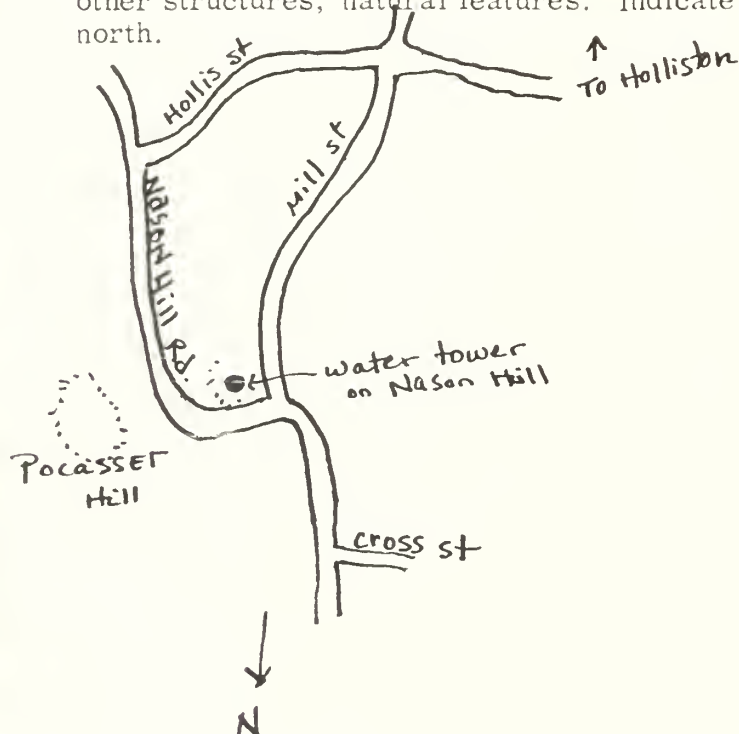 other structures, natural features. Indicate
north.
Hollis st
To Holliston
Mill st
Nason Hill Rd.
water tower
on Nason Hill
Pocasset
Hill
cross st
N